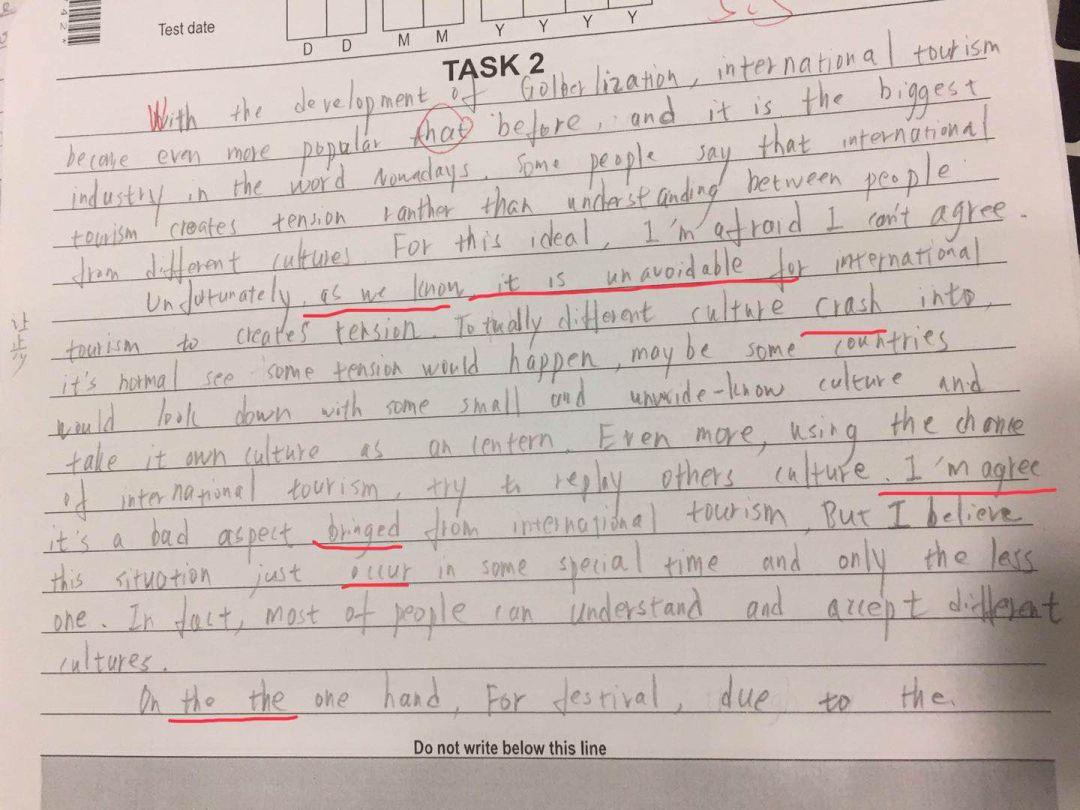 Test date
D D M M Y Y Y Y
TASK 2
With the development of Golberlization, international tourism
became even more popular that before, and it is the biggest
industry in the word Nowadays. Some people say that international
tourism creates tension ranther than understanding between people
from different cultures. For this ideal, I'm afraid I can't agree.
Unfortunately, as we know it is unavoidable for international
tourism to creates tension. Totually different culture crash into,
it's normal see some tension would happen, maybe some countries
would look down with some small and unwide-know culture and
take it own culture as an centern. Even more, using the chance
of international tourism, try to replay others culture. I'm agree
it's a bad aspect bringed from international tourism, But I believe
this situation just occur in some special time and only the less
one. In fact, most of people can understand and accept different
cultures.
On the the one hand, For festival, due to the
Do not write below this line